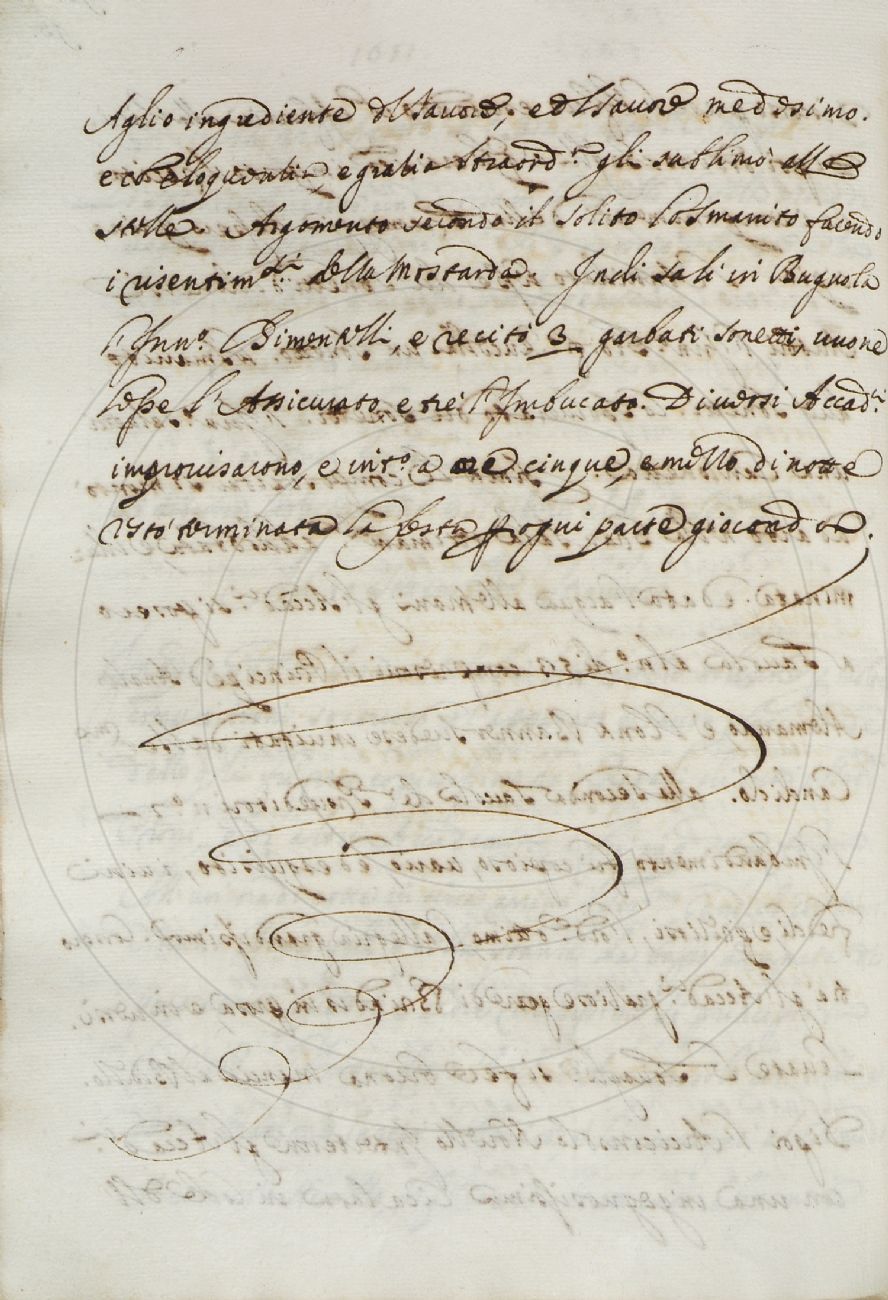 Aglio ingrediente del savore, e del savore medesimo.
e con eloquentia, e gratia straord.ia gli sublimò alle
stelle. Argomentò secondo il solito lo Smanito facendo
i risentim.ti della Mostarda. Indi salì in Bugnola
l'Inn.o Pimentelli, e recitò 3 garbati sonetti, uno ne
lesse l'Assicurato, e tre l'Imbucato. Diversi Accad.ci
improvisarono, e a ore cinque, e mezzo di notte
restò terminata la festa per ogni parte gioconda.